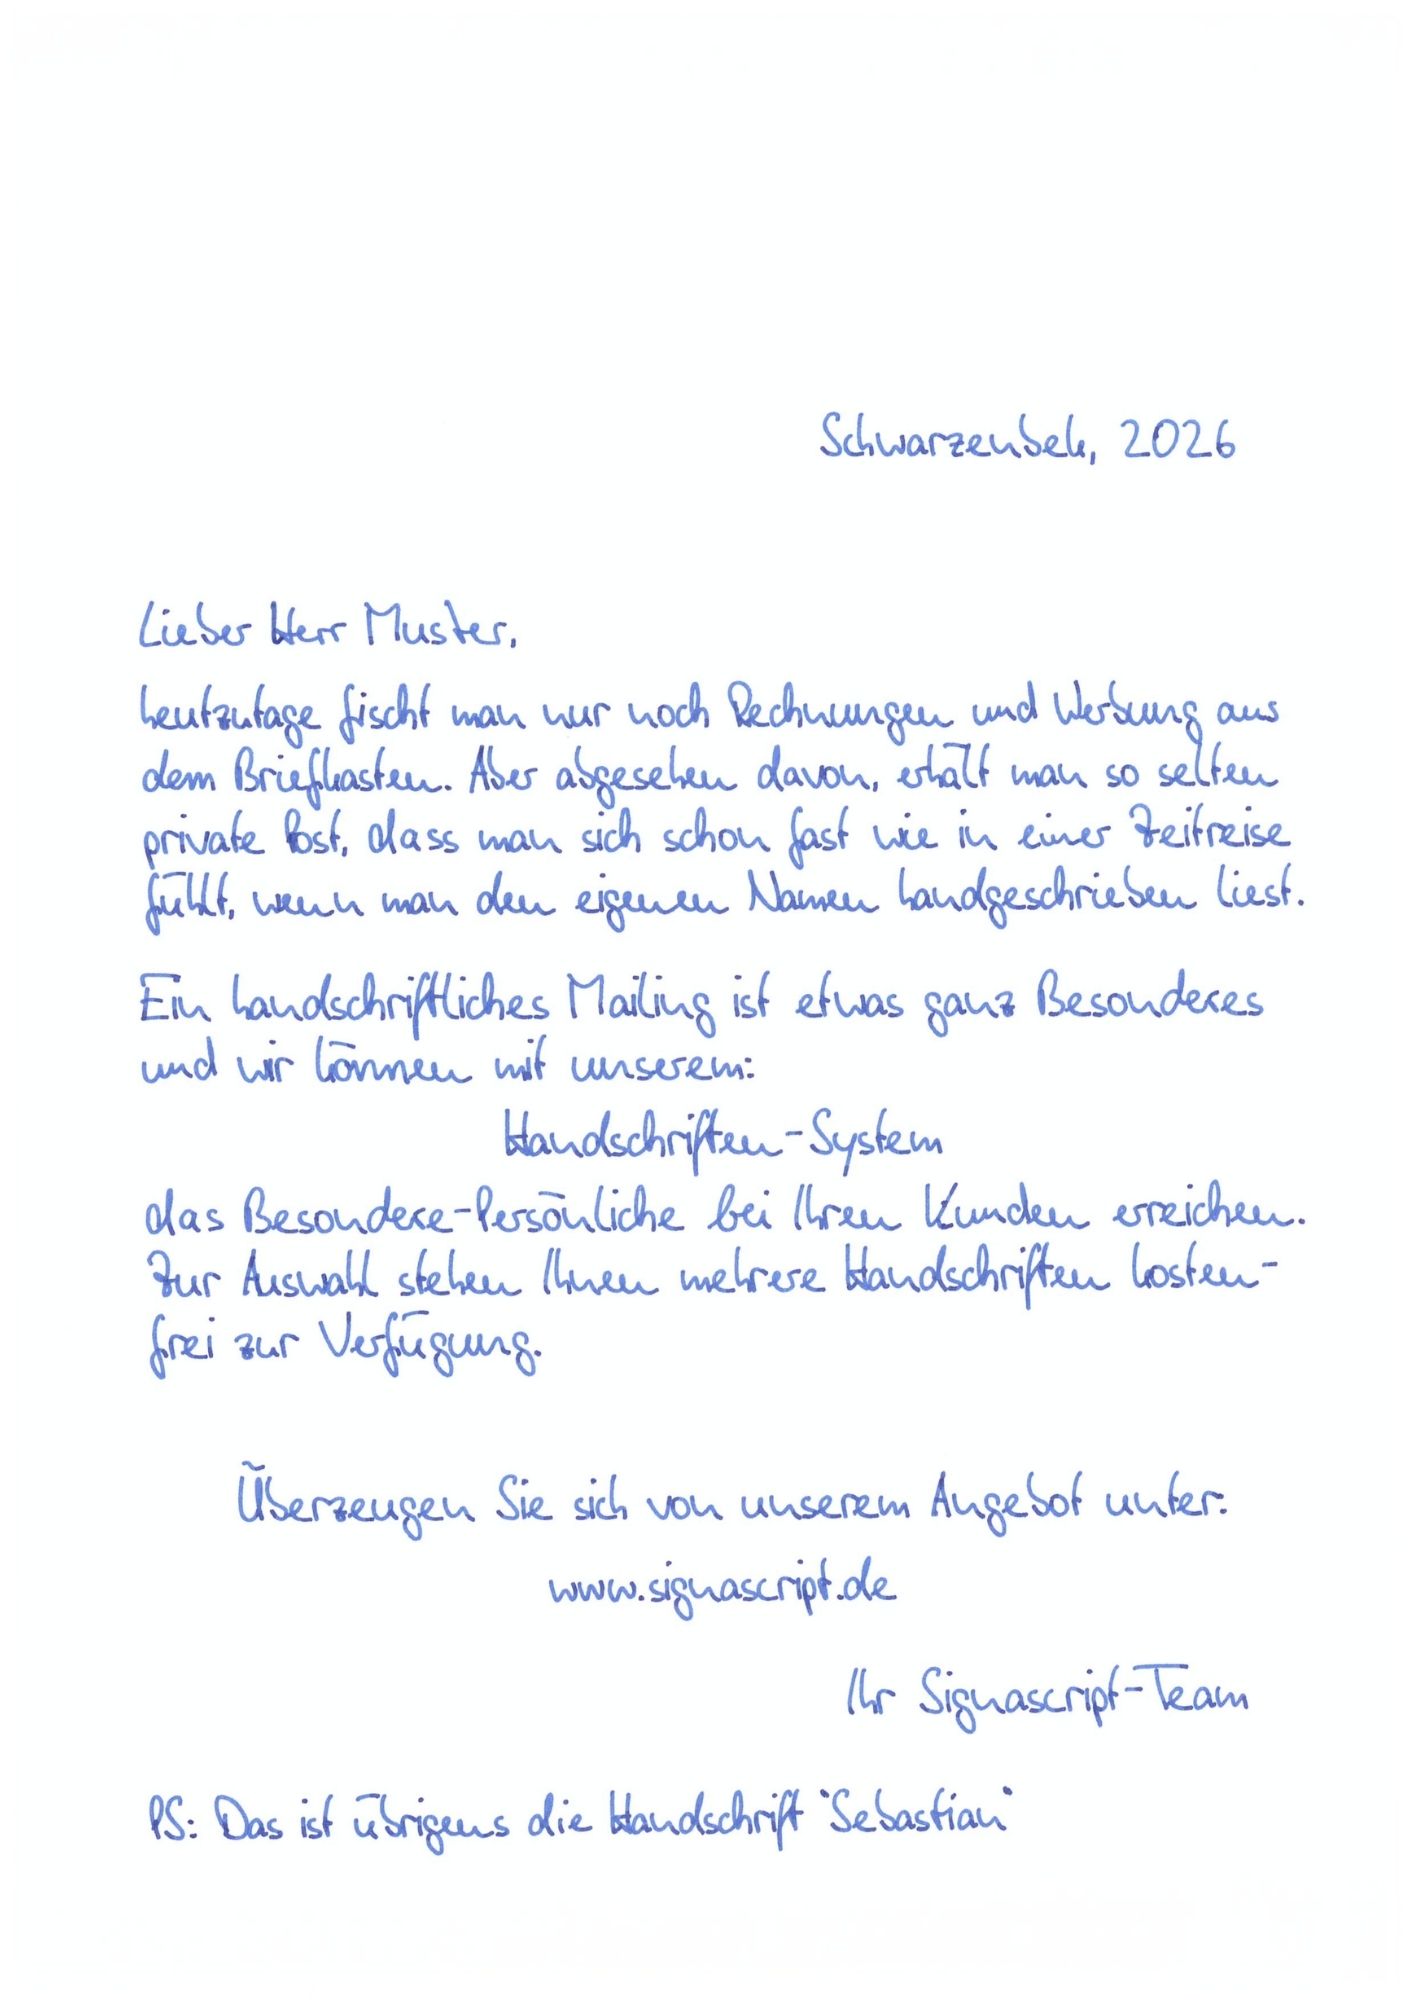 Schwarzenbek, 2026
Lieber Herr Muster,
heutzutage fischt man nur noch Rechnungen und Werbung aus
dem Briefkasten. Aber abgesehen davon, erhält man so selten
private Post, dass man sich schon fast wie in einer Zeitreise
fühlt, wenn man den eigenen Namen handgeschrieben liest.
Ein handschriftliches Mailing ist etwas ganz Besonderes
und wir können mit unserem:
Handschriften-System
das Besondere-Persönliche bei Ihren Kunden erreichen.
Zur Auswahl stehen Ihnen mehrere Handschriften kosten-
frei zur Verfügung.
Überzeugen Sie sich von unserem Angebot unter:
www.signascript.de
Ihr Signascript-Team
PS: Das ist übrigens die Handschrift "Sebastian"